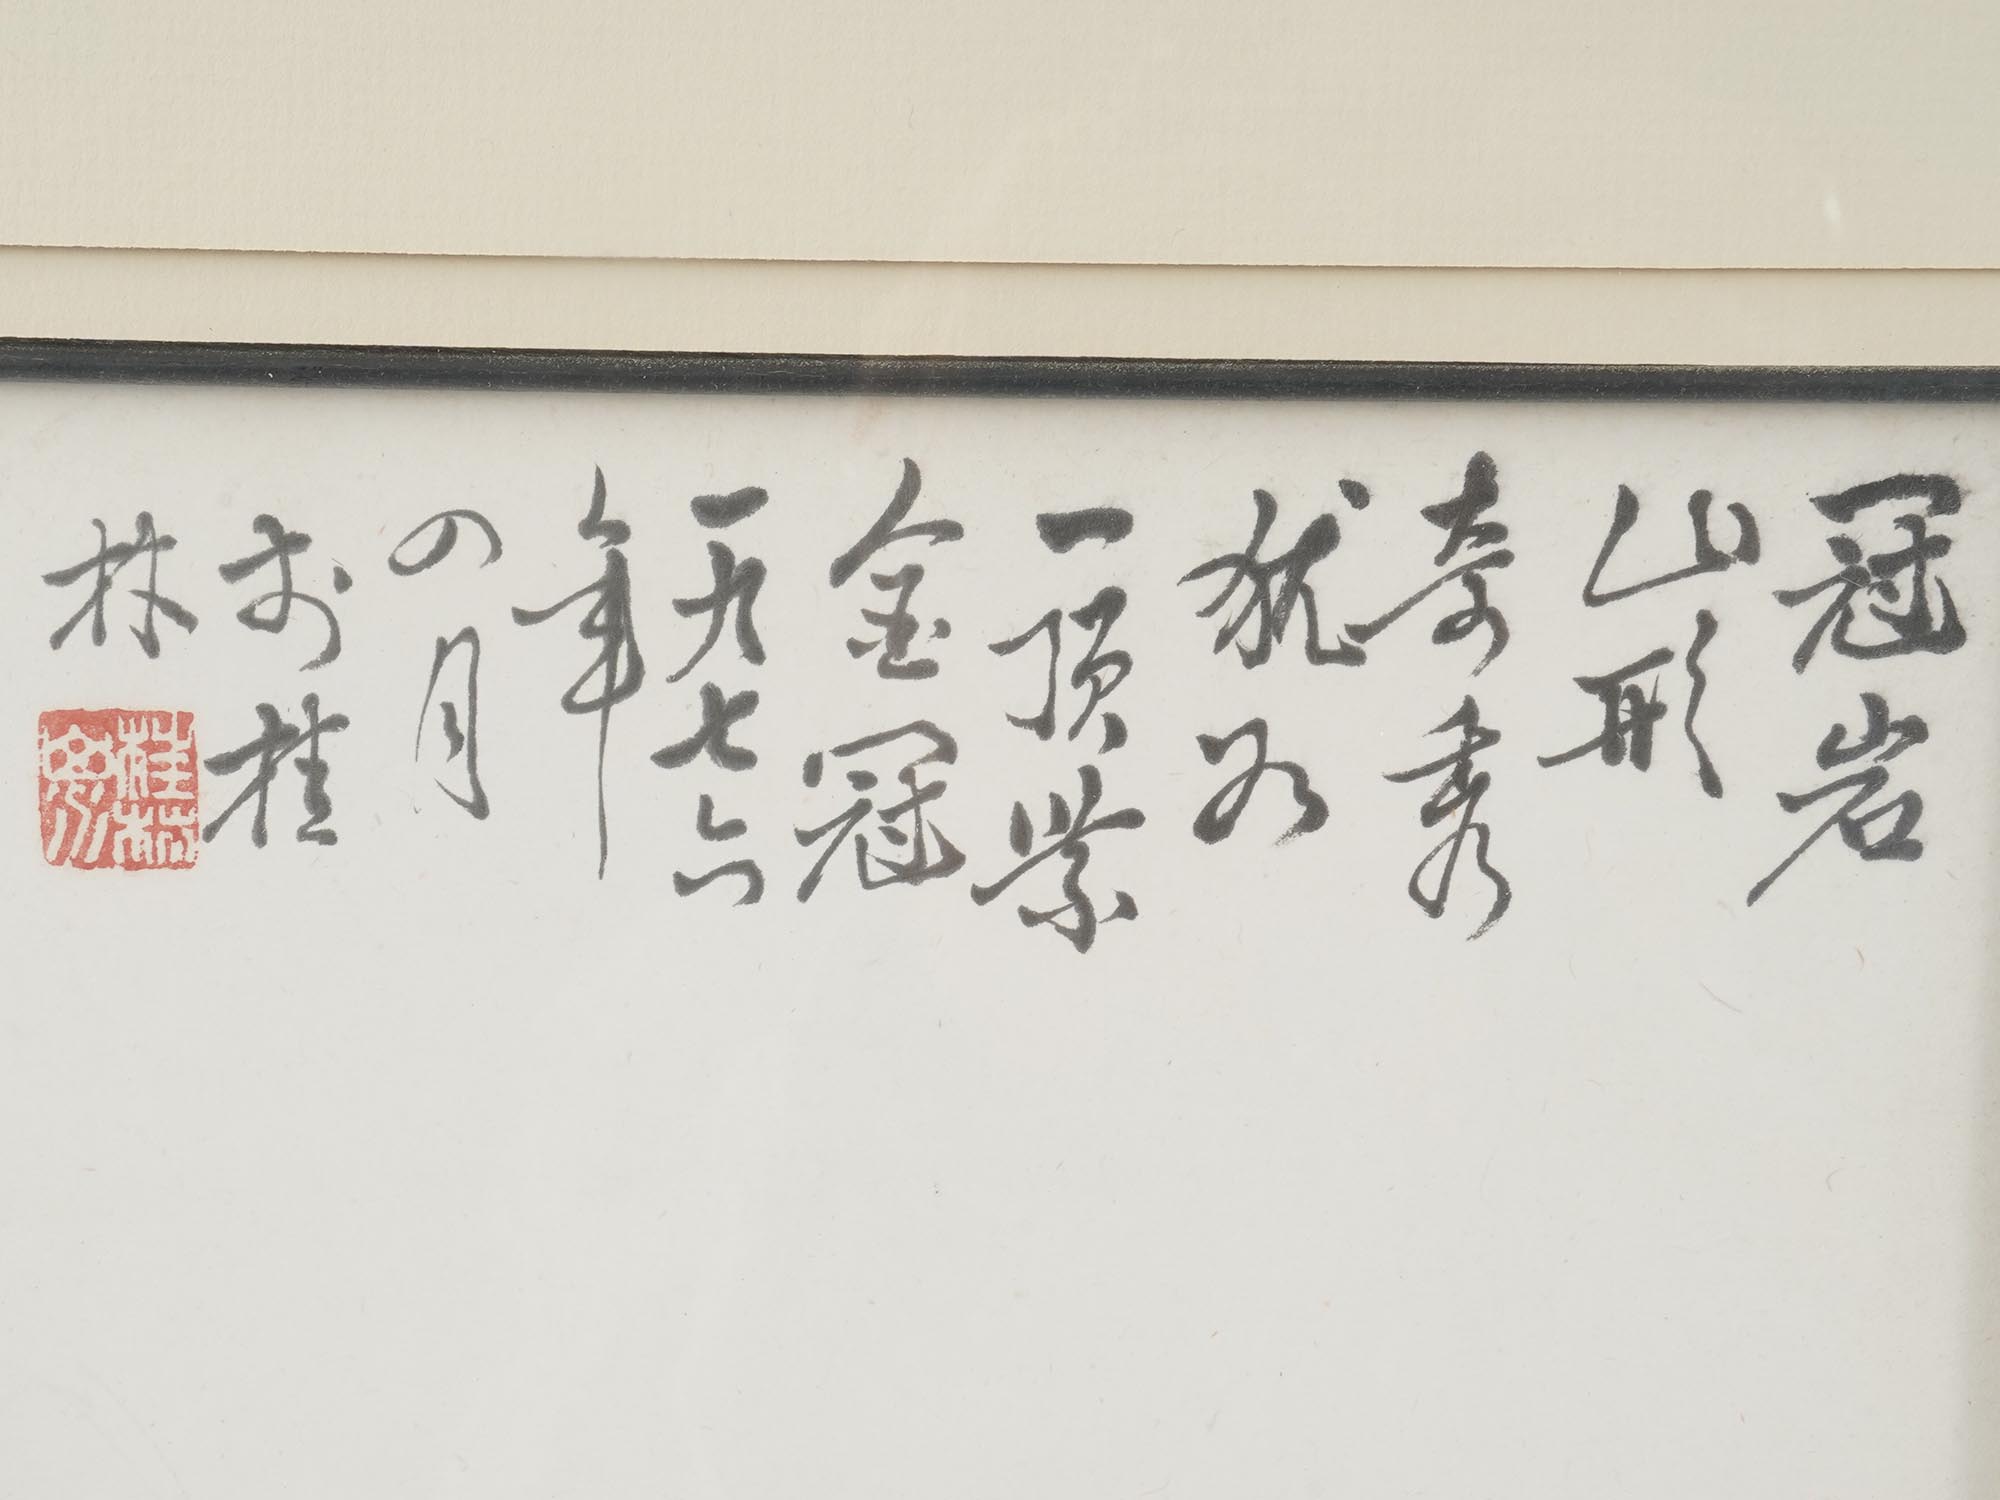 冠岩
山形
奇秀
犹如
一顶紫
金冠
一九七六
年
四月
于桂
林